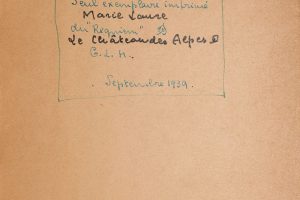 Seul exemplaire imprimé
Marie Laure
du "Requiem"
Le Château des Alpes
G.L.M.
Septembre 1939.